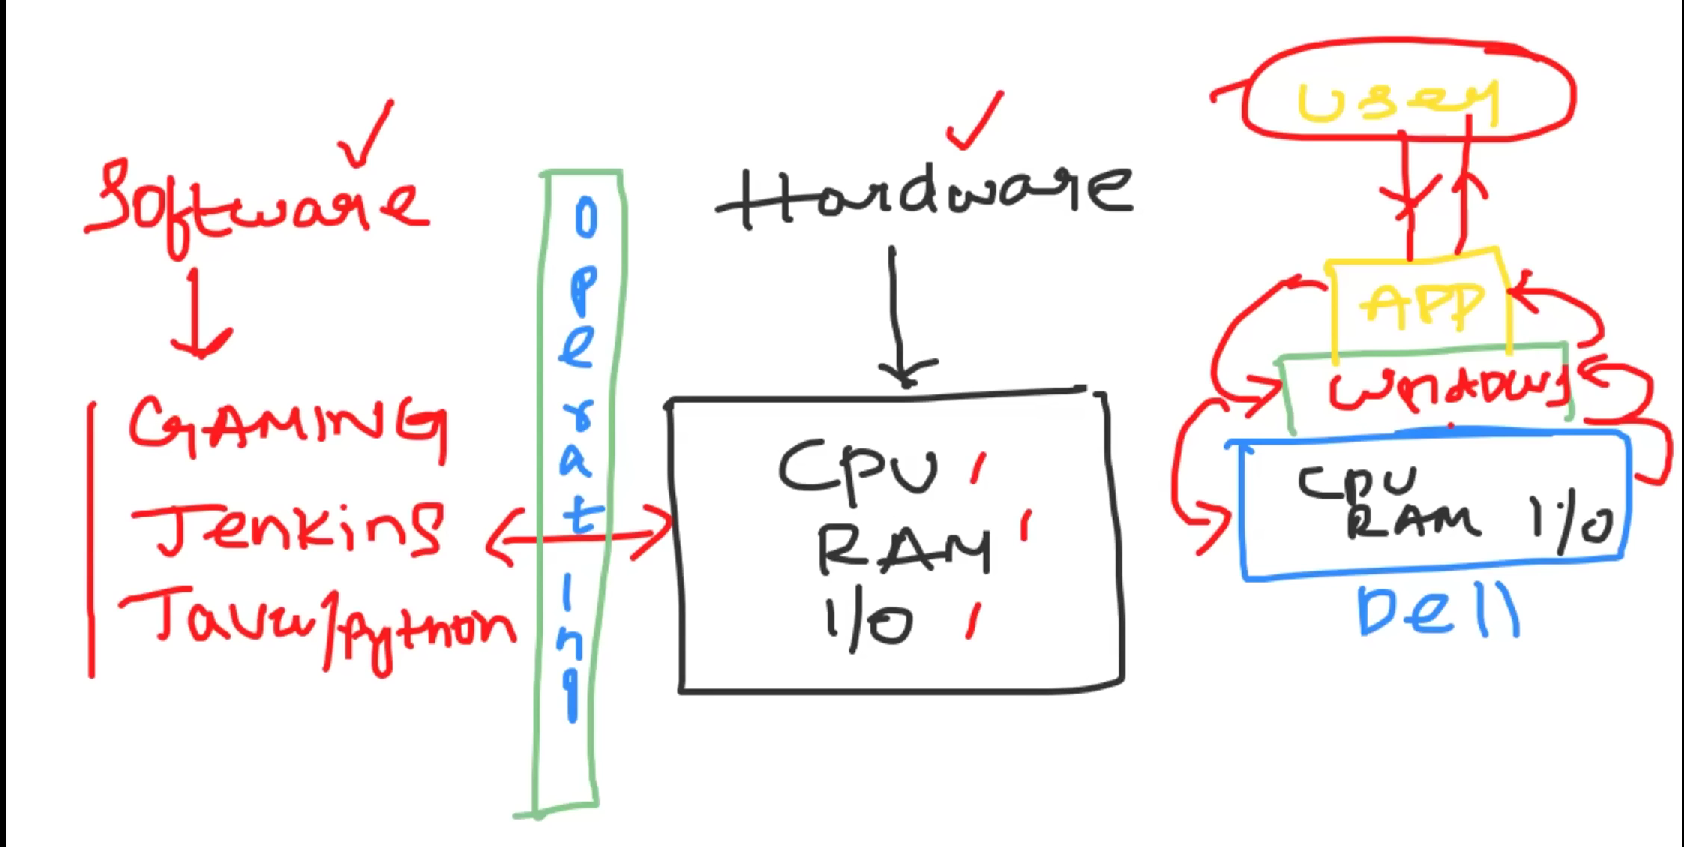 Software
GAMING
Jenkins
Java/python
Operating
Hardware
CPU
RAM
I/O
User
APP
WINDOWS
CPU
RAM I/O
Dell